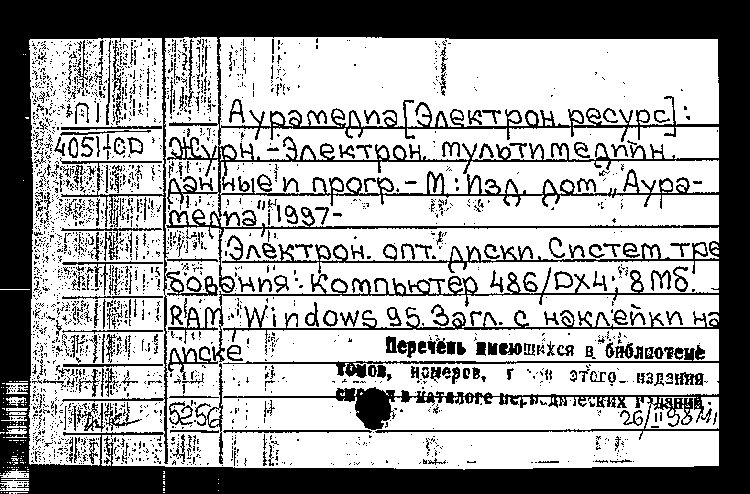 П1
Аурамедиа [Электрон. ресурс]:
4051-CD Журн. - Электрон. мультимедийн.
данные и прогр. - М: Изд. дом „Аура-
медиа", 1997-
Электрон. опт. диски. Систем. тре
бования: Компьютер 486/DX4; 8 Мб.
RAM. Windows 95. Загл. с наклейки на
диске
Перечень имеющихся в библиотеке
томов, номеров, этого издания
в каталоге периодических изданий
5256
26/II 98